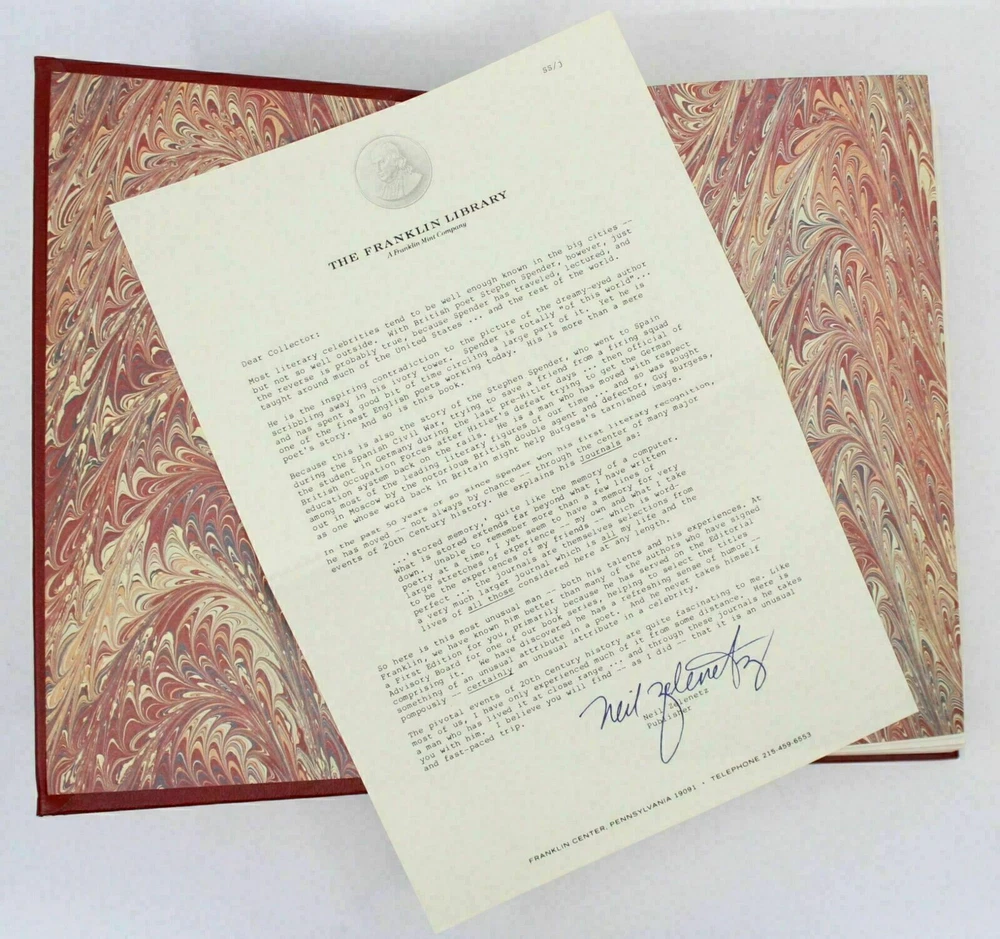 SS/J
THE FRANKLIN LIBRARY
A Franklin Mint Company
Dear Collector:
Most literary celebrities tend to be well enough known in the big cities --
but not so well outside. With British poet Stephen Spender, however, just
the reverse is probably true, because Spender has traveled, lectured, and
taught around much of the United States ... and the rest of the world.
He is the inspiring contradiction to the picture of the dreamy-eyed author
scribbling away in his ivory tower. Spender is totally "of this world"...
and has spent a good bit of time circling a large part of it. Yet he is
one of the finest English poets working today. His is more than a mere
poet's story. And so is this book.
Because this is also the story of the Stephen Spender, who went to Spain
during the Spanish Civil War, trying to save a friend from a firing squad
the student in Germany during the last pre-Hitler days ... then official of
British Occupation Forces after Hitler's defeat trying to get the German
education system back on the rails. He is a man who has moved with respect
among most of the leading literary figures of our time ... and so was sought
out in Moscow by the notorious British double agent and defector, Guy Burgess,
as one whose word back in Britain might help Burgess' tarnished image.
In the past 50 years or so since Spender won his first literary recognition,
he has moved -- not always by chance -- through the center of many major
events of 20th Century history. He explains his journals as:
...'stored memory,' quite like the memory of a computer.
What is stored extends far beyond what I have written
down. Unable to remember more than a few lines of
poetry at a time, I yet seem to have a memory for very
large stretches of experience -- my own and what I take
to be the experience of my friends -- which is word-
perfect ... the journals are themselves selections from
a very much larger journal which is all my life and the
lives of all those considered here at any length.
So here is this most unusual man -- both his talents and his experiences. At
Franklin, we have known him better than many of the authors who have signed
a First Edition for you, primarily because he has served on the Editorial
Advisory Board for one of our book series, helping to select the titles
comprising it. We have discovered he has a refreshing sense of humor --
something of an unusual attribute in a poet. And he never takes himself
pompously -- certainly an unusual attribute in a celebrity.
The pivotal events of 20th Century history are quite fascinating to me. Like
most of us, I have only experienced much of it from some distance. Here is
a man who has lived it at close range ... and through these journals he takes
you with him. I believe you will find -- as I did -- that it is an unusual
and fast-paced trip.
Neil Zelenetz
Neil Zelenetz
Publisher
FRANKLIN CENTER, PENNSYLVANIA 19091 • TELEPHONE 215-459-6553